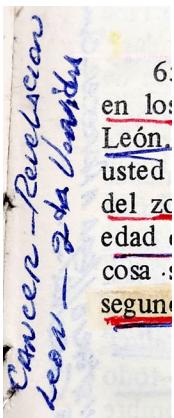 Cancer - Revelacion
Leon - 2da Venida
63
en los
León.
usted
del zo
edad
cosa s
segund